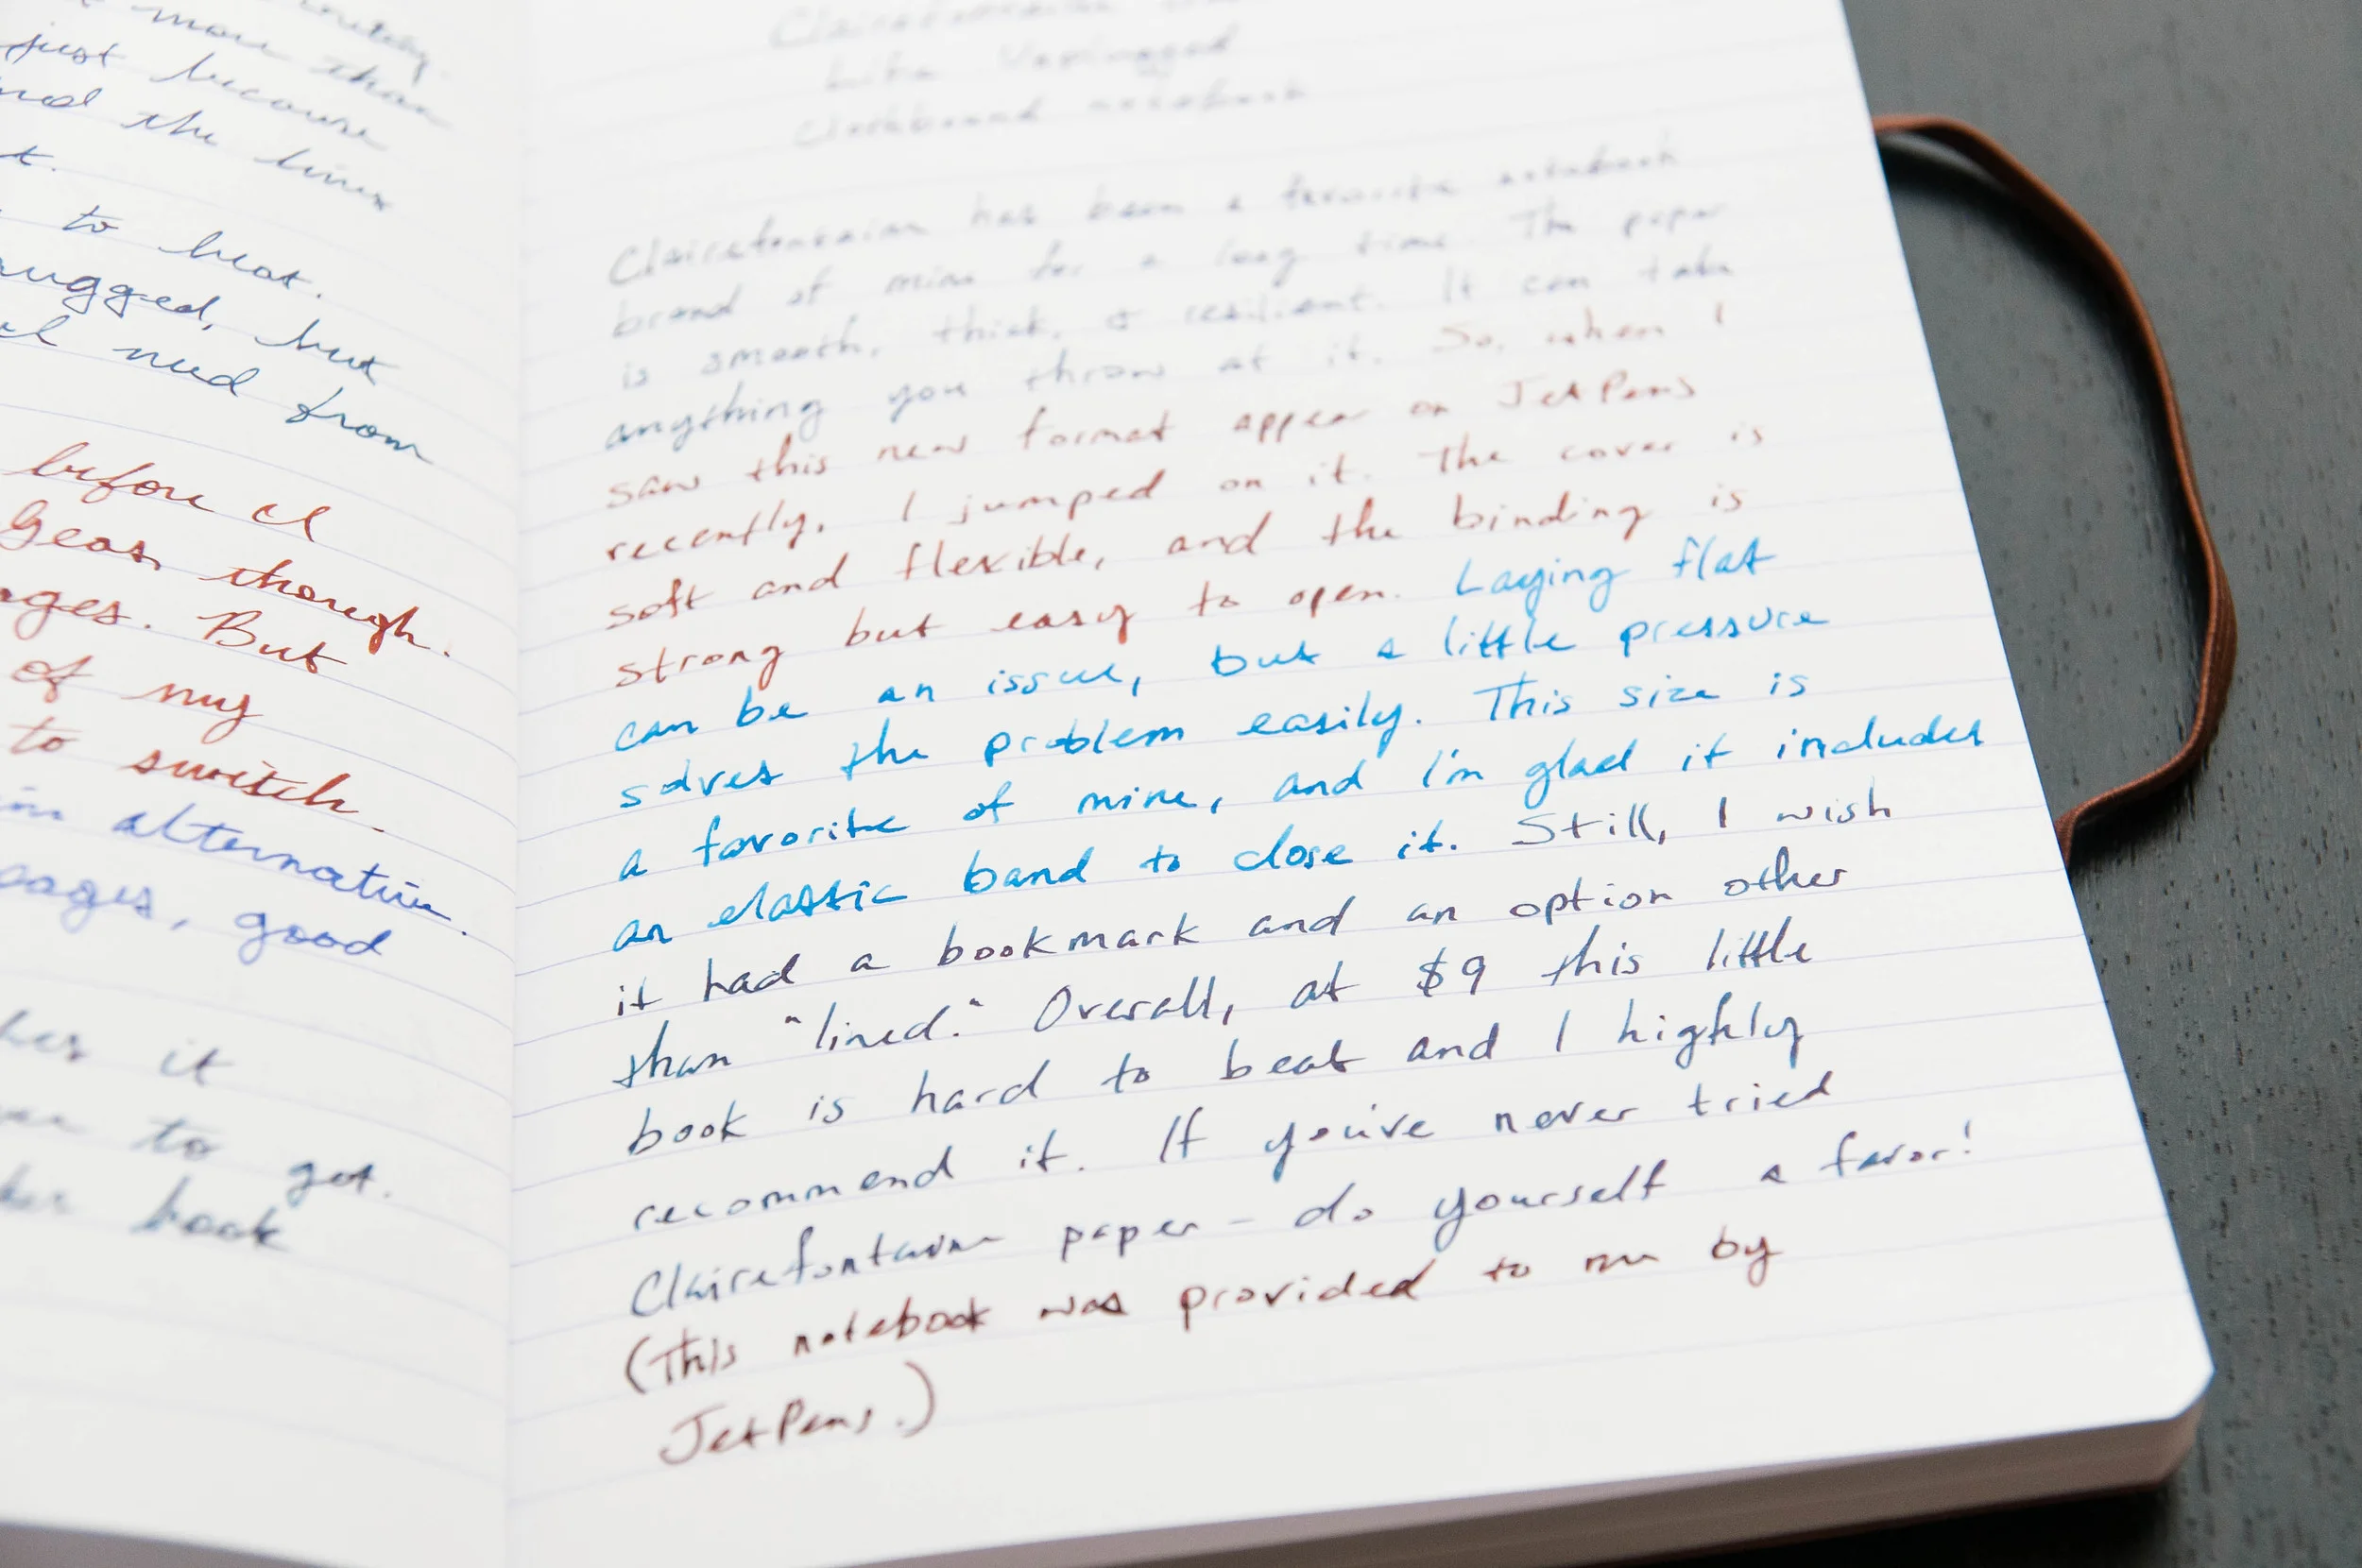 more than
just because
the lines
t.
to beat.
rugged, but
need from
before I
Geas, though.
ages. But
of my
to switch.
alternative.
pages, good
it
to get.
book
Clairefontaine
Life Unplugged
Clothbound notebook
Clairefontaine has been a favorite notebook
brand of mine for a long time. The paper
is smooth, thick, & resilient. It can take
anything you throw at it. So, when I
saw this new format appear on JetPens
recently, I jumped on it. The cover is
soft and flexible, and the binding is
strong but easy to open. Laying flat
can be an issue, but a little pressure
solves the problem easily. This size is
a favorite of mine, and I'm glad it includes
an elastic band to close it. Still, I wish
it had a bookmark and an option other
than "lined." Overall, at $9 this little
book is hard to beat and I highly
recommend it. If you've never tried
Clairefontaine paper - do yourself a favor!
(This notebook was provided to me by
JetPens.)